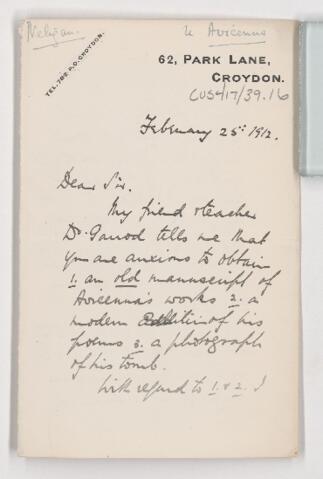 Neligan.
re Avicenna
TEL. 782 P.O. CROYDON.
62, PARK LANE,
CROYDON.
CUS4/17/39.16
February 25th 1912.
Dear Sir.
My friend & teacher
Dr. Garrod tells me that
you are anxious to obtain
1. an old manuscript of
Avicenna's works 2. a
modern edition of his
poems 3. a photograph
of his tomb.
With regard to 1 & 2. I